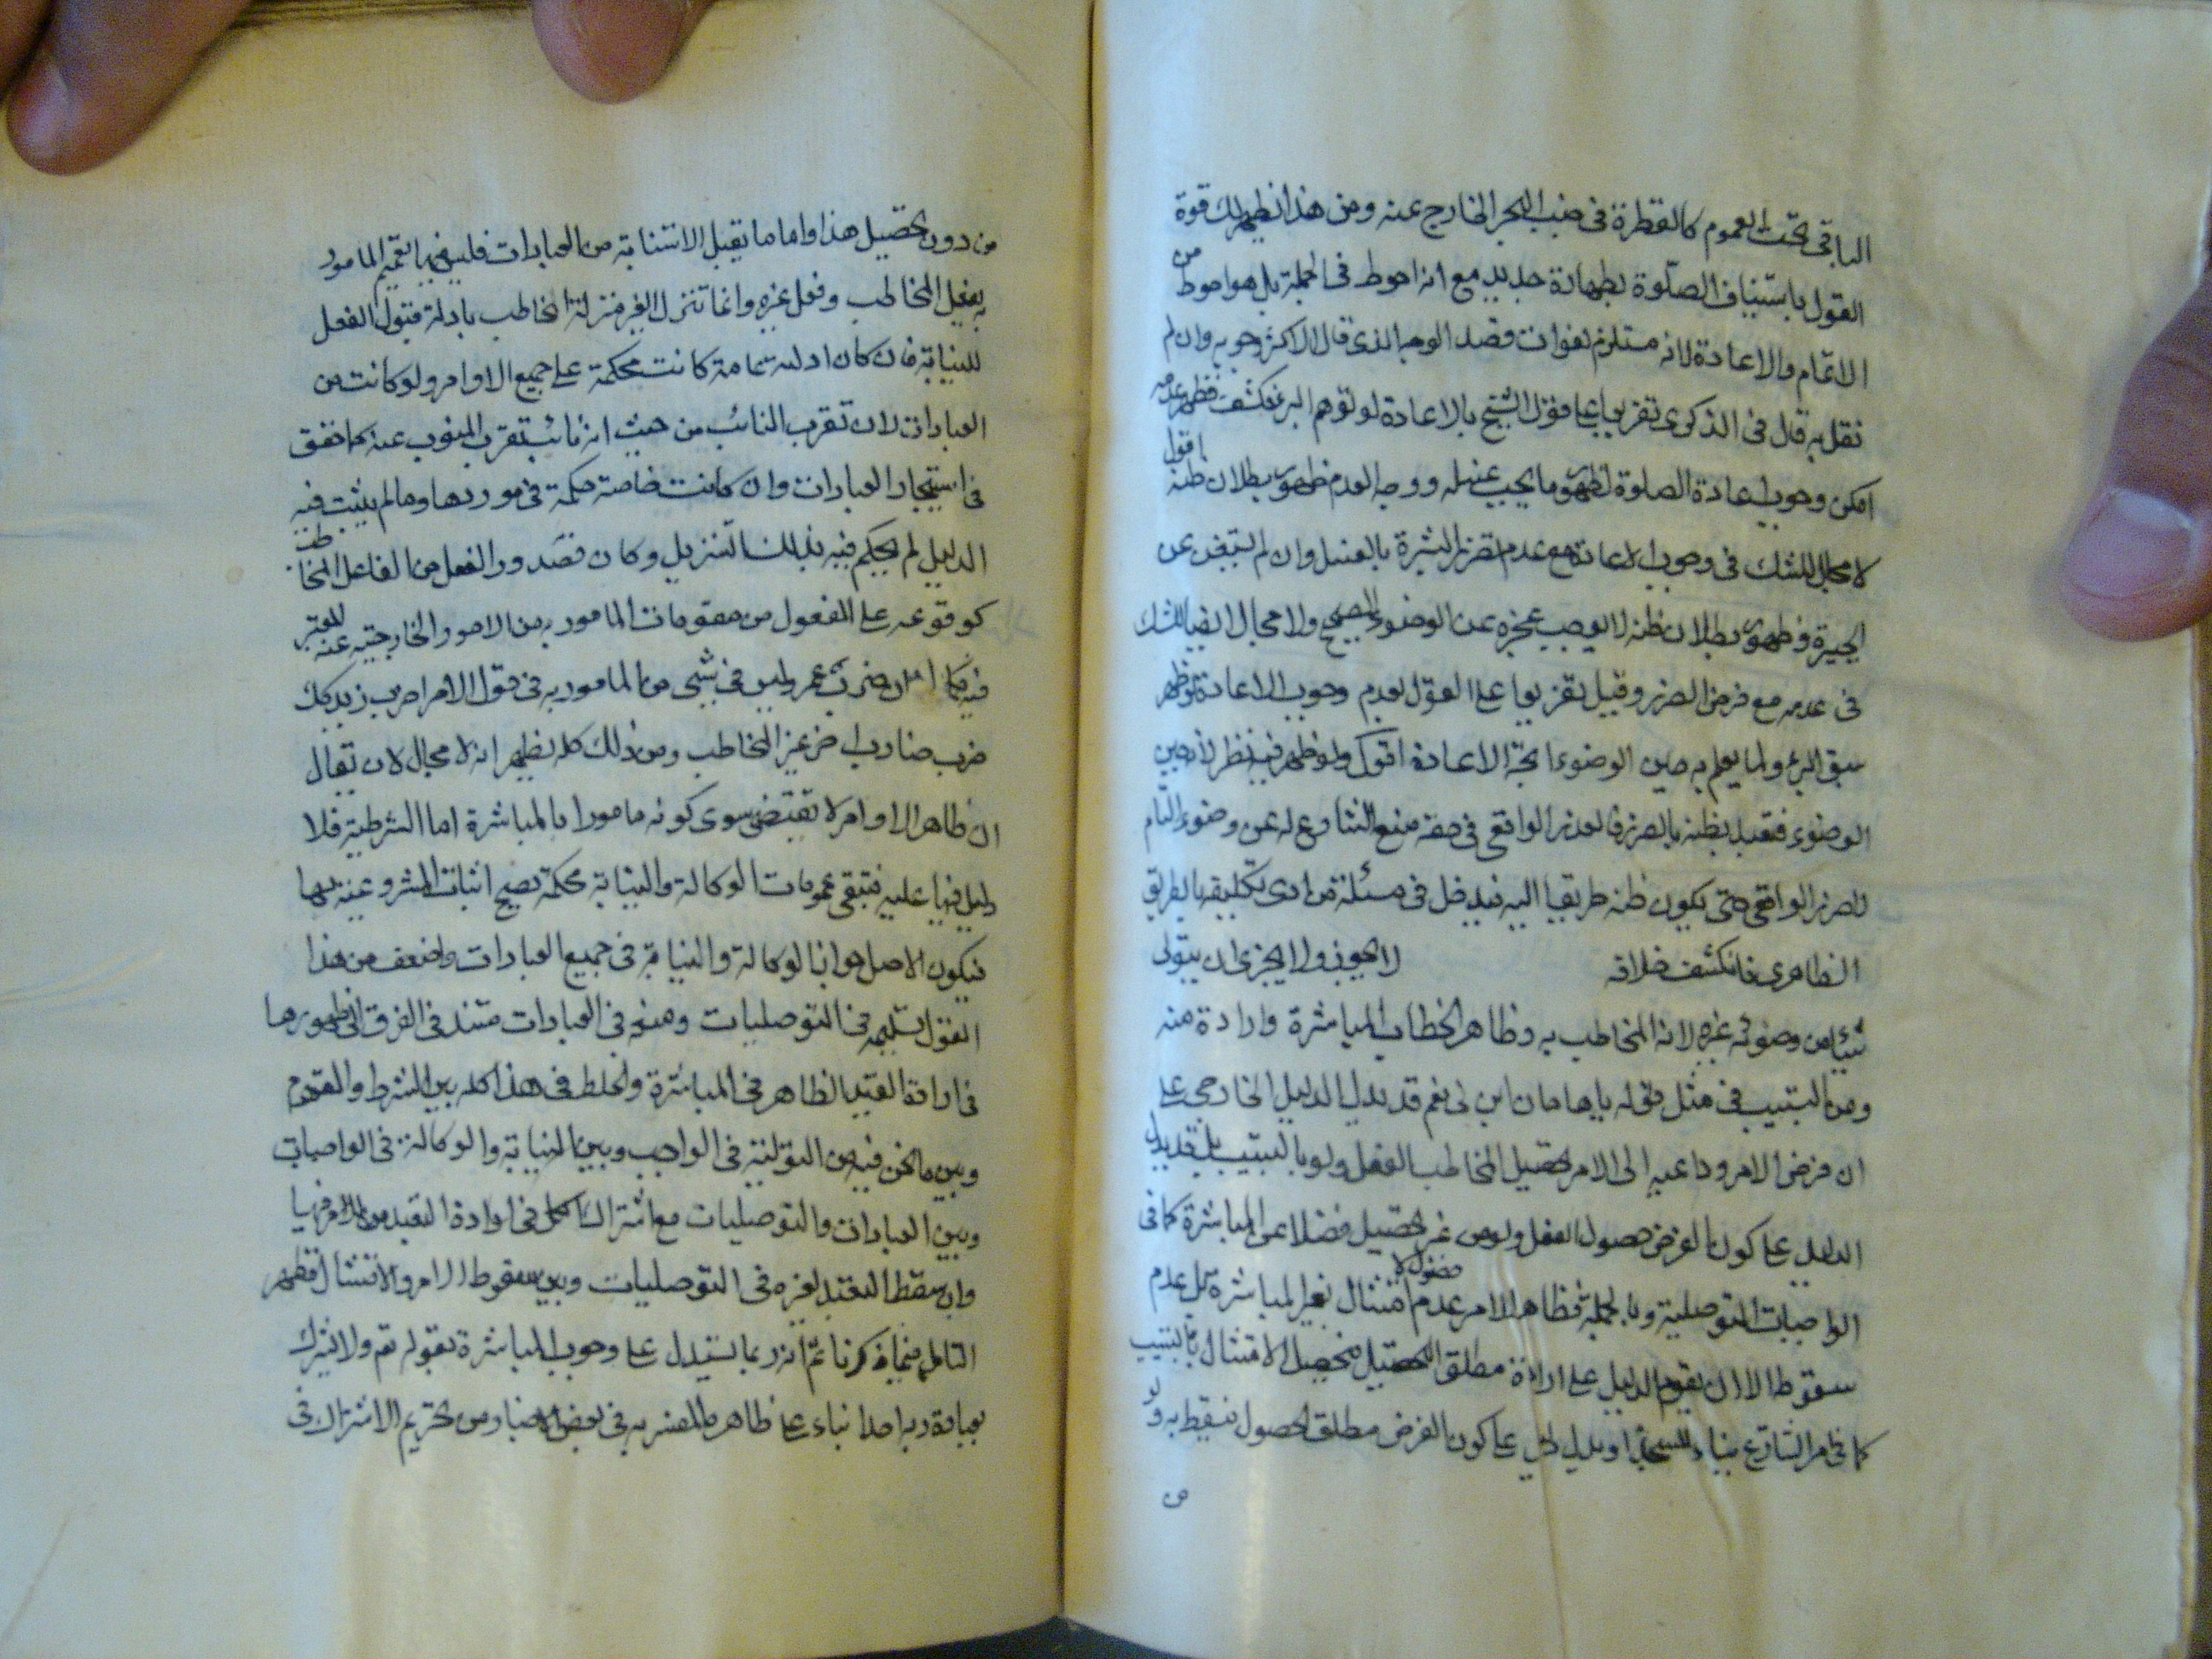 الباقي تحت العموم كالقطرة في جنب البحر الخارج عنه ومن هذا يظهر لك قوة
القول باستيناف الصلوة بطهارة جديدة مع انه احوط في الجملة بل هو احوط من
الاتمام والاعادة لانه مستلزم لفوات قصد الوجه الذي قال الاكثر بوجوبه وان لم
نقل به قال في الذكرى تفريعا على قول الشيخ بالاعادة لو توهم البرء فكشف فظهر عدمه
امكن وجوب اعادة الصلوة لظهور ما يجب غسله ووجه العدم ظهور بطلان ظنه اقول
لا مجال للشك في وجوب الاعادة مع عدم تضرر البشرة بالغسل وان لم يستغن عن
الجبيرة وظهور بطلان ظنه لا يوجب عجزه عن الوضوء الصحيح ولا مجال ايضا للشك
في عدمه مع فرض الضرر وقيل تفريعا على القول بعدم وجوب الاعادة لو ظهر
سبق البرء ولما يعلم به حين الوضوء اتجه الاعادة اقول وفيه نظر لانه حين
الوضوء فقيد بظنه بالضرر فالعذر الواقعي في حقه منع الشارع له عن وضوء التام
للضرر الواقعي حتى يكون ظنه طريقا اليه فيدخل في مسئلة من ادى تكليفه بالطريق
الظاهري فانكشف خلافه لا يجوز ولا يجزي ان يتولى
شيئا من وضوئه غيره لانه المخاطب به وظاهر الخطاب المباشرة وارادة منه
ومن التسبيب في مثل قوله يا هامان ابن لي نعم قد يدل الدليل الخارجي على
ان غرض الامر وداعيه الى الامر تحصيل المخاطب الفعل ولو بالتسبيب بل قد يدل
الدليل على كون الغرض حصول الفعل ولو من غير تحصيل فضلا عن المباشرة كما في
الواجبات التوصلية وبالجملة فظاهر الامر عدم حصول الامتثال بغير المباشرة بل عدم
سقوط الا ان يقوم الدليل على ارادة مطلق التحصيل فيحصل الامتثال بالتسبيب
كما في امر الشارع ببناء المسجد او يدل دليل على كون الغرض مطلق الحصول فيسقط به ولو
من
من دون تحصيل هذا واما ما يقبل الاستنابة من العبادات فليس فيها تعميم المامور
به بفعل المخاطب وفعل غيره وانما تنزل الغير منزلة المخاطب بادلة قبول الفعل
للنيابة فان كان ادلته عامة كانت محكمة على جميع الاوامر ولو كانت من
العبادات لان تقرب النائب من حيث انه نائب تقرب المنوب عنه كما حقق
في استيجار العبادات وان كانت خاصة حكمت في موردها وما لم يثبت فيه
الدليل لم يحكم فيه بذلك التنزيل وكان قصدور الفعل من الفاعل المخاطب
كوقوعه على المفعول من مقومات المامور به من الامور الخارجية عنه المعتبر
فيه فكما ان ضرب عمر وليس في شيء من المامور به في قول الامر اضرب زيد كك
ضرب ضارب اخر غير المخاطب ومن ذلك كله يظهر انه لا مجال لان يقال
ان ظاهر الاوامر لا تقتضي سوى كونه مامورا بالمباشرة اما الشرطية فلا
دليل فيها عليه فتبقى عمومات الوكالة والنيابة محكمة يصح اثبات المشروعية بها
فيكون الاصل جواز الوكالة والنيابة في جميع العبادات واضعف من هذا
القول تسليمه في التوصليات ومنعه في العبادات مستند في الفرق الى ظهورها
في ارادة القيد الظاهر في المباشرة والخلط في هذا كله بين الشرط والمقوم
وبين ما نحن فيه من التولية في الواجب وبين النيابة والوكالة في الواجبات
وبين العبادات والتوصليات مع اشتراك الكل في ارادة التقيد من الامر فيها
وان سقط التقيد لغيره في التوصليات وبين سقوط الامر والامتثال فظهر
التامل فيما ذكرنا ثم انه ربما يستدل على وجوب المباشرة بقوله تع ولا يشرك
بعبادة ربه احدا بناء على ظاهره المفسر به في بعض الاخبار ومن تحريم الاشتراك في